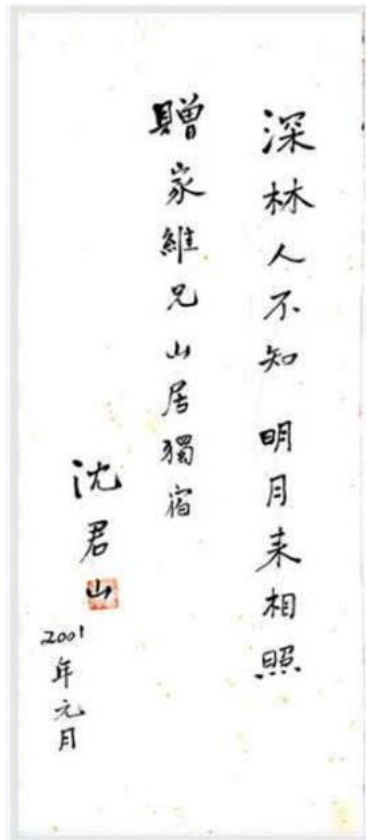 深林人不知 明月来相照
贈家維兄山居獨宿
沈君山
2001年元月